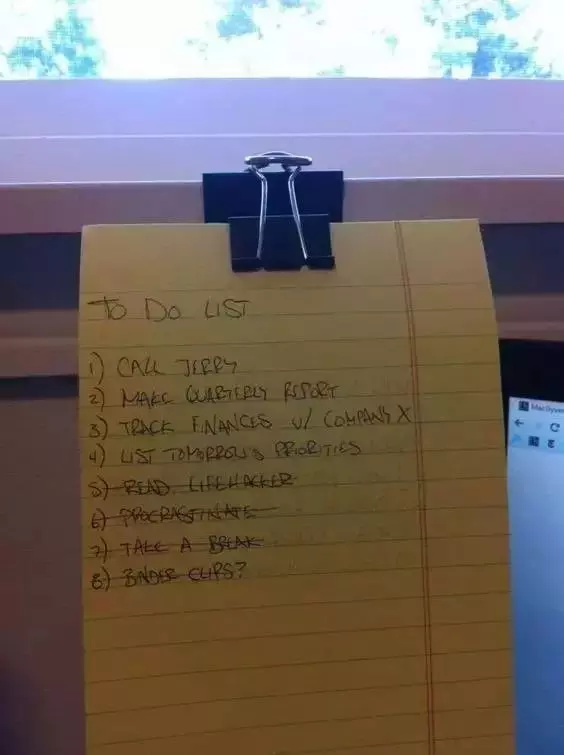 TO DO LIST
1) CALL JERRY
2) MAKE QUARTERLY REPORT
3) TRACK FINANCES W/ COMPANY X
4) LIST TOMORROW'S PRIORITIES
5) READ LIFEHACKER
6) PROCRASTINATE
7) TAKE A BREAK
8) BINDER CLIPS?
MacGyver